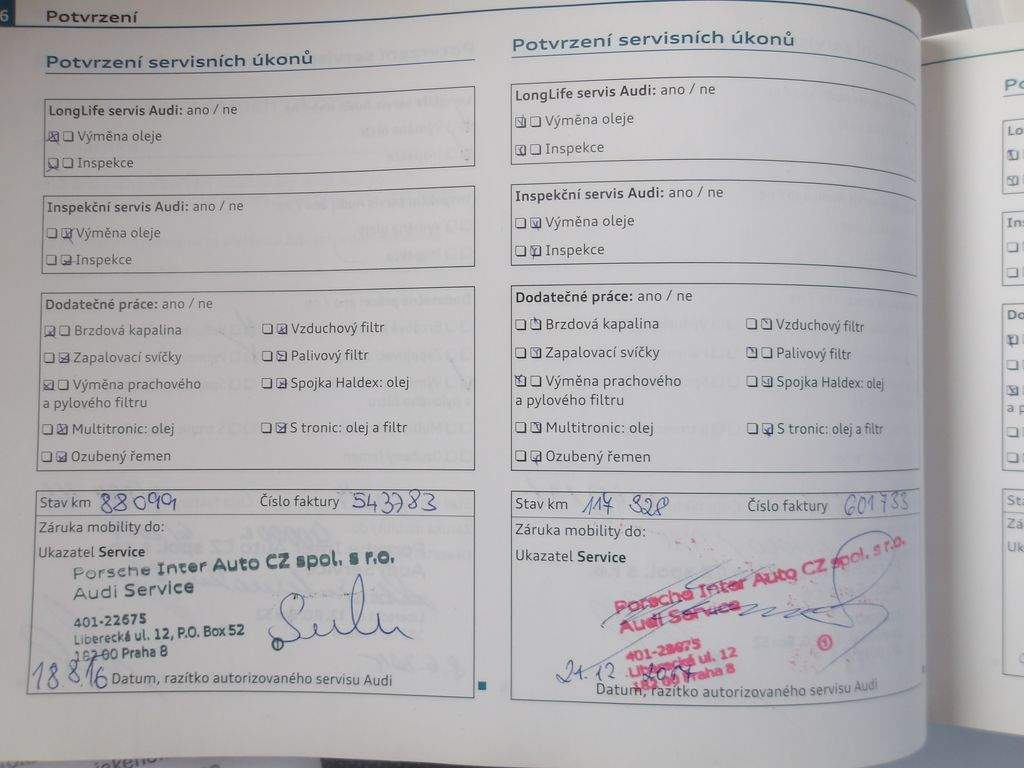 6
Potvrzení
Potvrzení servisních úkonů
LongLife servis Audi: ano / ne
Výměna oleje
Inspekce
Inspekční servis Audi: ano / ne
Výměna oleje
Inspekce
Dodatečné práce: ano / ne
Brzdová kapalina
Vzduchový filtr
Zapalovací svíčky
Palivový filtr
Výměna prachového
a pylového filtru
Spojka Haldex: olej
Multitronic: olej
S tronic: olej a filtr
Ozubený řemen
Stav km 88099 Číslo faktury 543783
Záruka mobility do:
Ukazatel Service
Porsche Inter Auto CZ spol. s r.o.
Audi Service
401-22675
Liberecká ul. 12, P.O. Box 52
182 00 Praha 8
1
18.8.16 Datum, razítko autorizovaného servisu Audi
Potvrzení servisních úkonů
LongLife servis Audi: ano / ne
Výměna oleje
Inspekce
Inspekční servis Audi: ano / ne
Výměna oleje
Inspekce
Dodatečné práce: ano / ne
Brzdová kapalina
Vzduchový filtr
Zapalovací svíčky
Palivový filtr
Výměna prachového
a pylového filtru
Spojka Haldex: olej
Multitronic: olej
S tronic: olej a filtr
Ozubený řemen
Stav km 117 328 Číslo faktury 601733
Záruka mobility do:
Ukazatel Service
Porsche Inter Auto CZ spol. s r.o.
Audi Service
401-22675
Liberecká ul. 12
182 00 Praha 8
1
21.12 2017
Datum, razítko autorizovaného servisu Audi